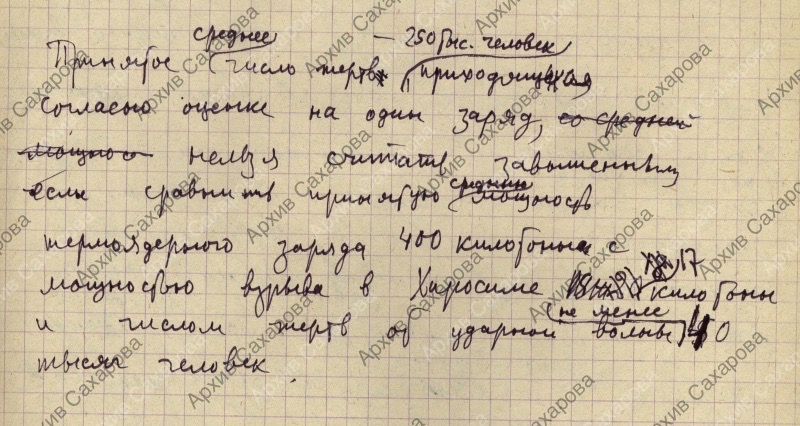 среднее — 250 тыс. человек
Принятое число жертв, приходящихся
согласно оценке на один заряд, со средней
мощнос нельзя считать завышенным,
если сравнить принятую среднюю мощность
термоядерного заряда 400 килотонн с
мощностью взрыва в Хиросиме 17 килотонн
и числом жертв от ударной волны не менее 40
тысяч человек.
Архив Сахарова